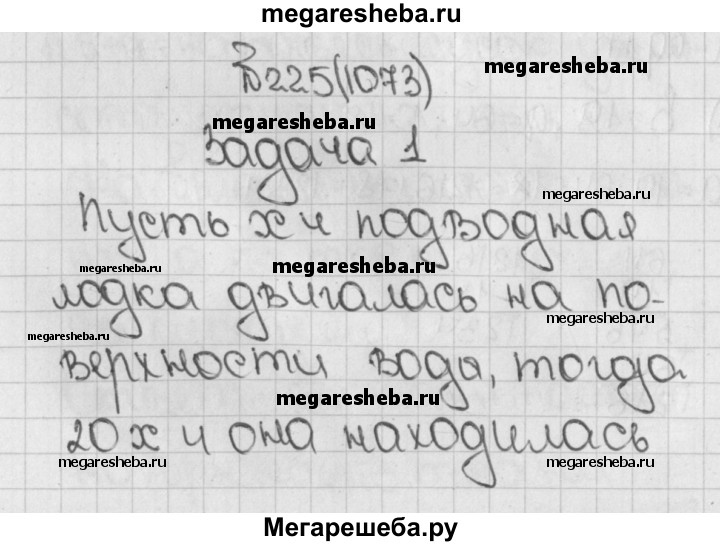 megaresheba.ru
№225(1073)
megaresheba.ru
megaresheba.ru
Задача 1
megaresheba.ru
Пусть х ч подводная
megaresheba.ru
megaresheba.ru
лодка двигалась на по-
megaresheba.ru
megaresheba.ru
верхности воды, тогда
megaresheba.ru
20х ч она находилась
megaresheba.ru
megaresheba.ru
Мегарешеба.ру